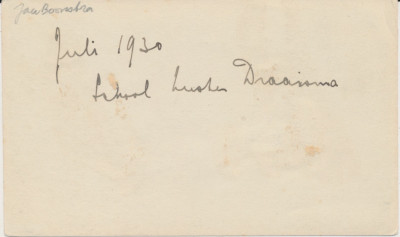 Jacc Boonstra
Juli 1930
School Zuster Draaisma